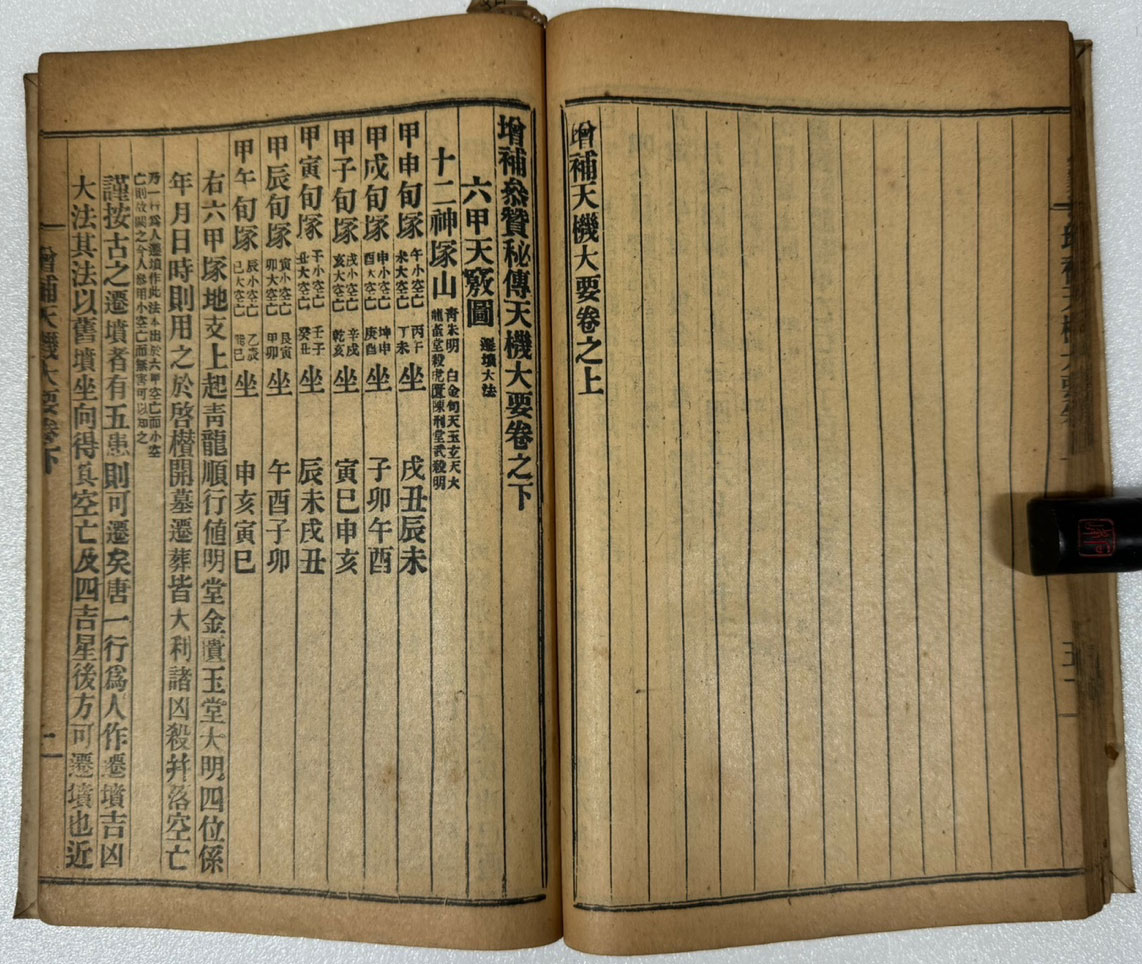 增補天機大要卷之上
增補參贊秘傳天機大要卷之下
六甲天竅圖 遷墳大法
十二神塚山
甲申旬塚 午小空亡 未大空亡 丙午 丁未 坐 戌丑辰未
甲戌旬塚 申小空亡 酉大空亡 坤申 庚酉 坐 子卯午酉
甲子旬塚 戌小空亡 亥大空亡 辛戌 乾亥 坐 寅巳申亥
甲寅旬塚 子小空亡 丑大空亡 壬子 癸丑 坐 辰未戌丑
甲辰旬塚 寅小空亡 卯大空亡 艮寅 甲卯 坐 午酉子卯
甲午旬塚 辰小空亡 巳大空亡 乙辰 巽巳 坐 申亥寅巳
右六甲塚地支上起靑龍順行値明堂金匱玉堂大明四位係
年月日時則用之於啓欑開墓遷葬皆大利諸凶殺幷落空亡
乃一行爲人遷墳作此法本出於六甲空亡而小空
亡則故闕之今人參用小空亡而無害可以知之
謹按古之遷墳者有五患則可遷矣唐一行爲人作遷墳吉凶
大法其法以舊墳坐向得眞空亡及四吉星後方可遷墳也近
增補天機大要卷下